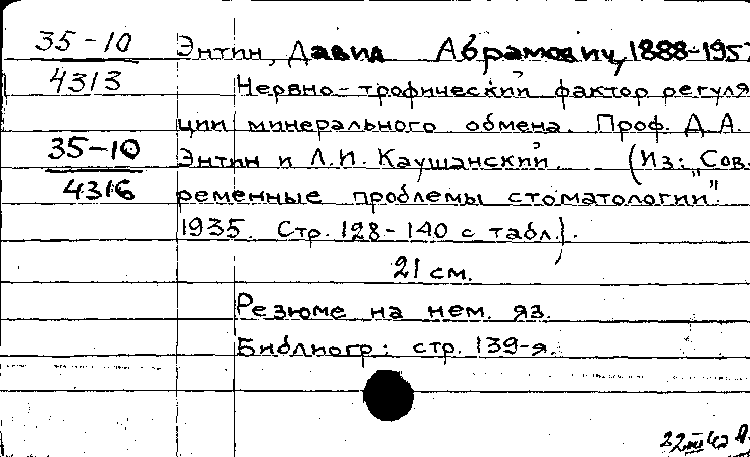 35-10
4313
35-10
4316
Энтин, Давид Абрамович, 1888-195
Нервно-трофический фактор регуля
ции минерального обмена. Проф. Д.А.
Энтин и Л.И. Каушанский. (Из: „Сов.
ременные проблемы стоматологии".
1935. Стр. 128-140 с табл.).
21 см.
Резюме на нем. яз.
Библиогр: стр. 139-я.